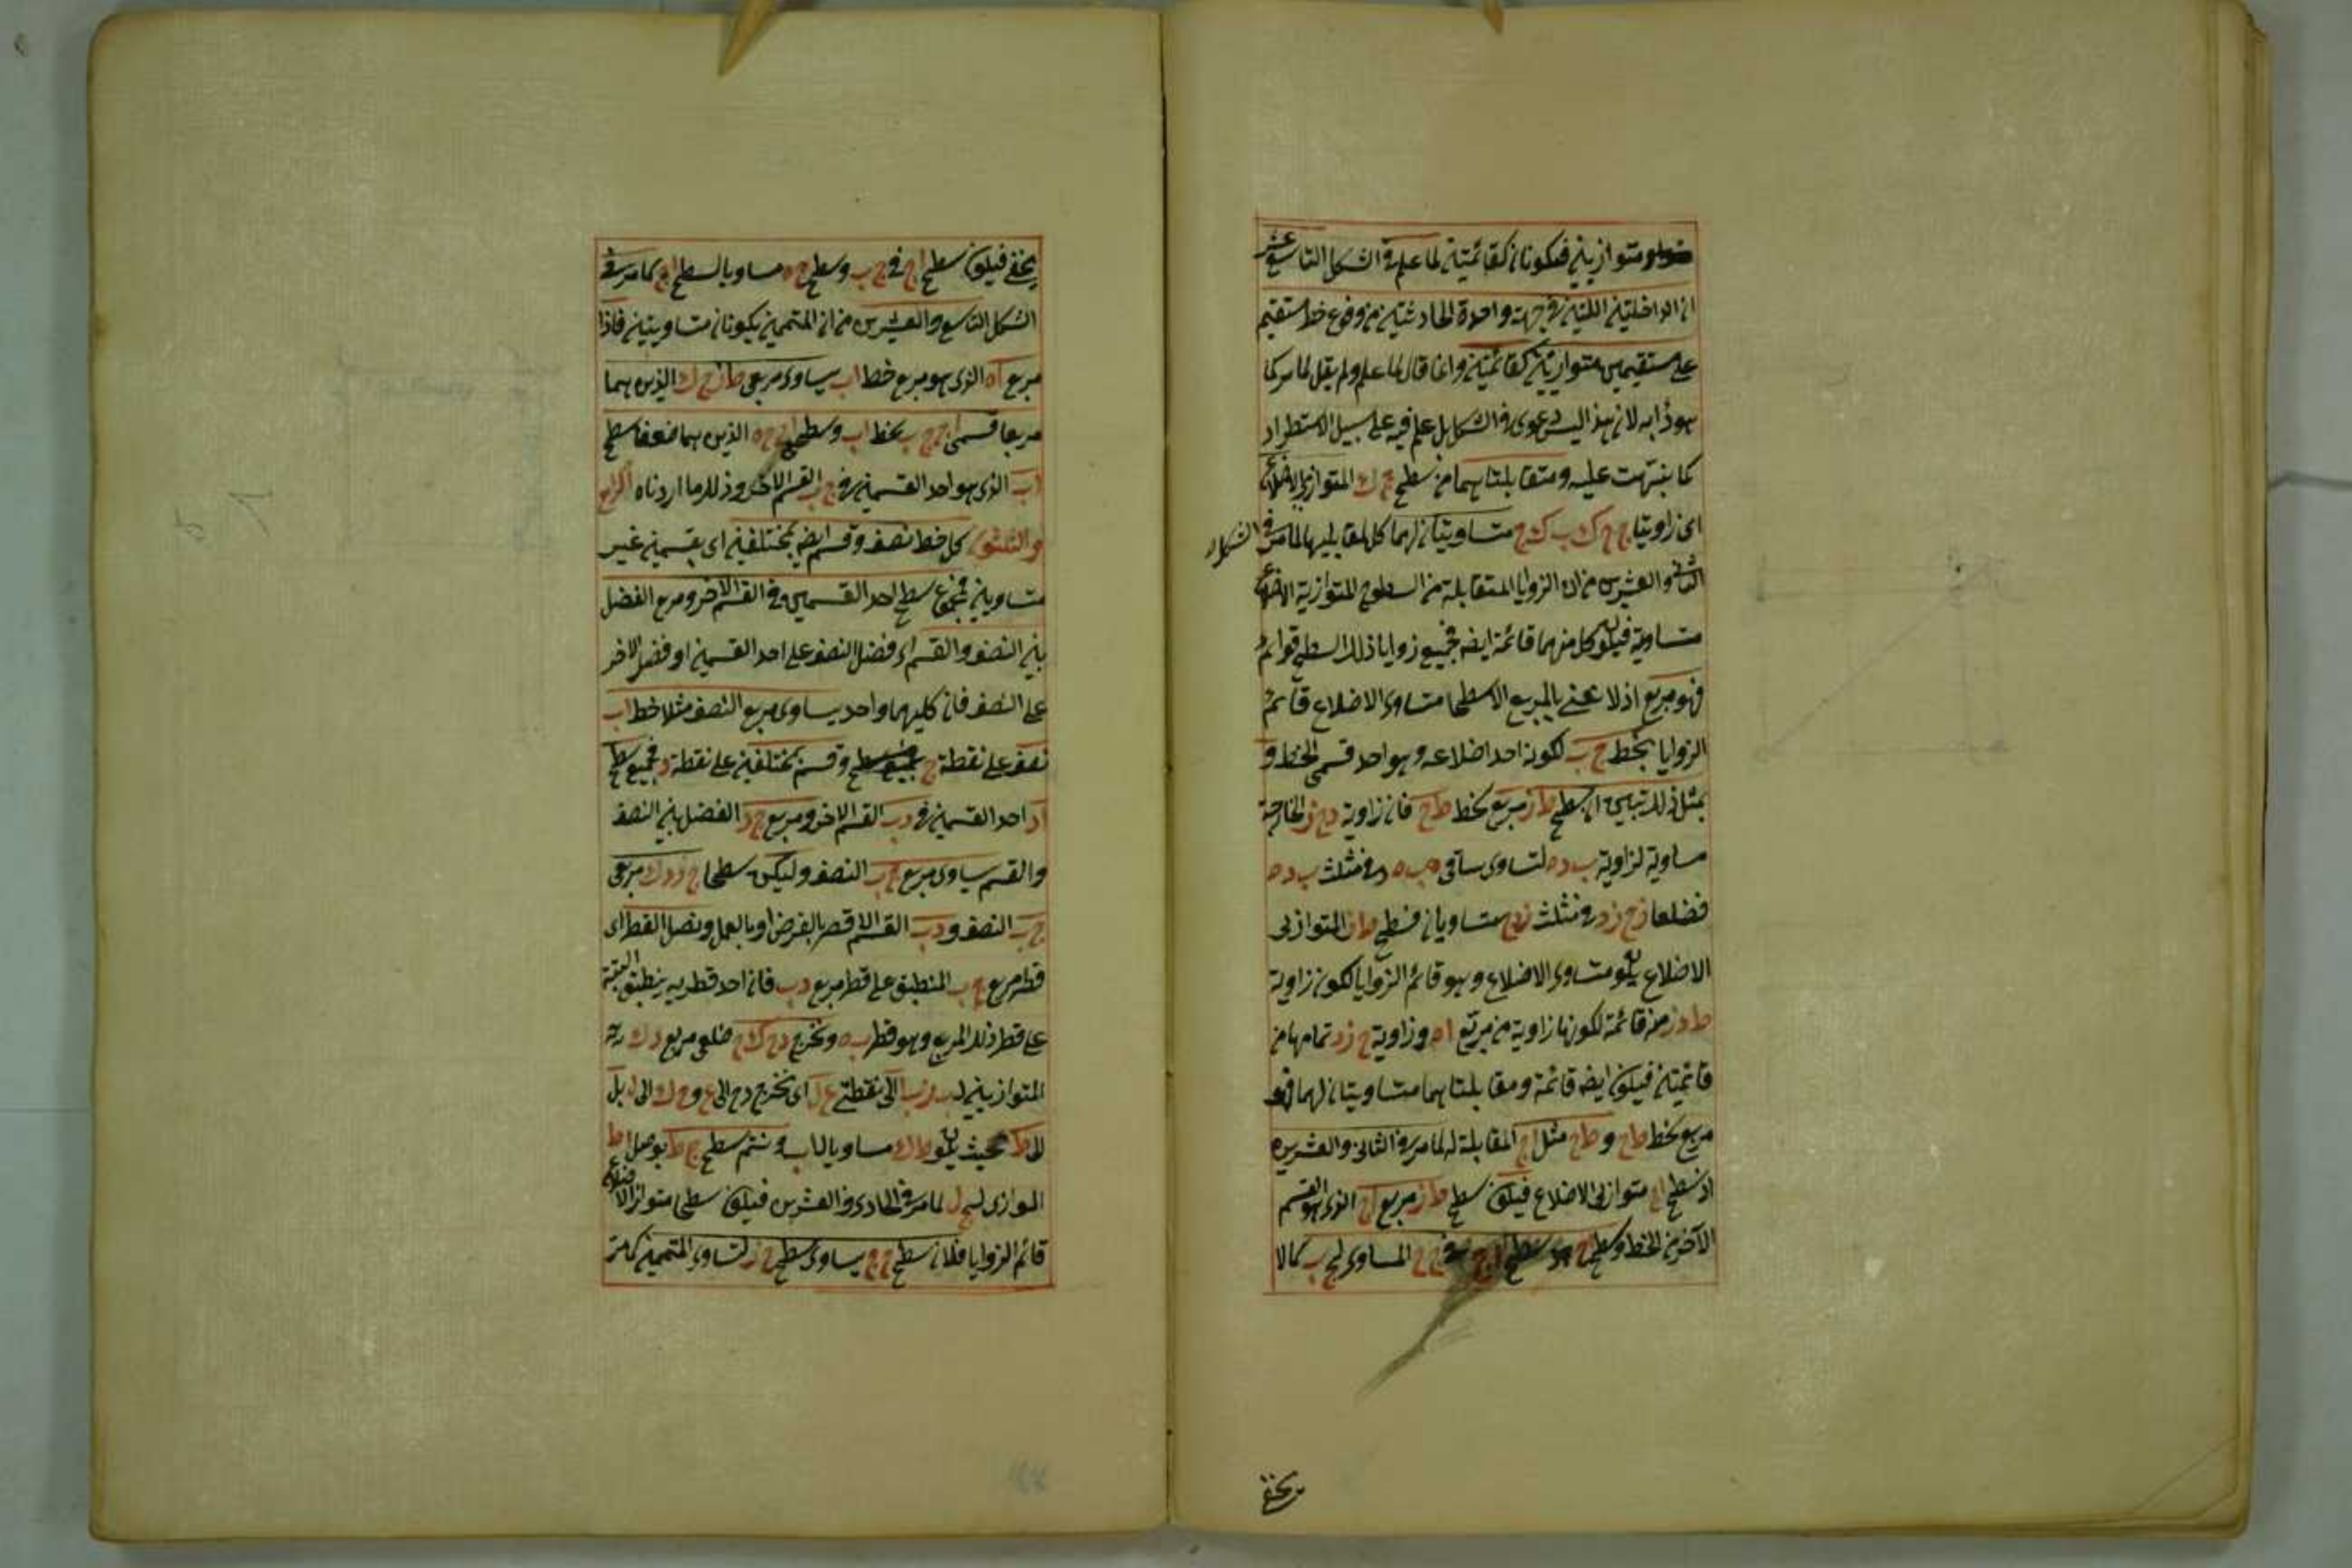 متوازيين فيكونان كقائمتين لما علم في الشكل التاسع عشر
ان الداخلتين اللتين في جهة واحدة الحادثتين من وقوع خط مستقيم
على مستقيمين متوازيين كقائمتين وانما قال لما علم ولم يقل لما مر كما
هو دأبه لان هذا ليس دعوى في الشكل بل علم فيه على سبيل الاستطراد
كما نبهت عليه ومتقابلتاهما من سطح ك المتوازي الاضلاع
اى زاويتا ج ح ك ب ك ح متساويتان لهما كل لمقابليها لما مر في الشكل
الثاني والعشرين من ان الزوايا المتقابلة من السطوح المتوازية الاضلاع
متساوية فيكون كل منهما قائمة ايضه فجميع زوايا ذلك السطح قوائم
فهو مربع اذ لا نعني بالمربع الا سطحا متساوى الاضلاع قائم
الزوايا بخط ج ب لكونه احد اضلاعه وهو احد قسمى الخط و
بمثل ذلك تبين ان سطح ط ز مربع بخط ط ح فان زاوية د ح ز الخارجة
مساوية لزاوية ب د ه لتساوى ساقى ب ه في مثلث ب د ه
فضلعا ز ح ز د في مثلث ز د ح متساويان فسطح ط ز المتوازى
الاضلاع يكون متساوى الاضلاع وهو قائم الزوايا لكون زاوية
ط د ز منه قائمة لكونها زاوية من مربع ا ه وزاوية ح ز د تمامها من
قائمتين فيكون ايضه قائمة ومقابلتاهما متساويتان لهما فهو
مربع بخط ط ح و ط ح مثل ا ج المقابلة له لما مر في الثاني والعشرين
اذ سطح ا ح متوازى الاضلاع فيكون سطح ط ز مربع ا ج الذى هو القسم
الآخر من الخط وسطح ا ح سطح ا ج في ج ح المساوى لج ب كما لا
يخفى
يخفى فيكون سطح ا ج في ج ب وسطح ح ه مساو بالسطح ا ح كما مر في
الشكل التاسع والعشرين من ان المتممين يكونان متساويين فاذا
مربع ا ه الذى هو مربع خط ا ب يساوى مربعى ط ز ج ك الذين هما
مربعا قسمى ا ج ج ب بخط ا ب وسطحى ا ح ح ه الذين هما ضعفا سطح
الذى هو احد القسمين في ج ب القسم الآخر وذلك ما اردناه الرابع
والثلثون كل خط نصف وقسم ايضه بمختلفين اى بقسمين غير
متساويين فمجموع سطح احد القسمين في القسم الآخر ومربع الفضل
بين النصف والقسم اى فضل النصف على احد القسمين او فضل الآخر
على النصف فان كليهما واحد يساوى مربع النصف مثلا خط ا ب
نصف على نقطة ج وقسم بمختلفين على نقطة د فجميع سطح
ا د احد القسمين في د ب القسم الآخر ومربع ج د الفضل بين النصف
والقسم يساوى مربع ج ب النصف وليكن سطحا ج ز د ك مربعى
ج ب النصف و د ب القسم الاقصر بالفرض او بالعمل ونصل القطر اى
قطر مربع ج ب المنطبق على قطر مربع د ب فان احد قطريه ينطبق البتة
على قطر ذلك المربع وهو قطر ب ه ونخرج د ح ك ح ضلعى مربع د ك
المتوازيين ل الى نقطتى ع ل اى نخرج د ح الى ع و ح ك الى ل بل
الى ط بحيث يكون ط ك مساويا ل ا ب ونتم سطح ج ط بوصل ا ط
الموازى ل ج ل لما مر في الحادى والعشرين فيكون سطحا متوازى الاضلاع
قائم الزوايا فلان سطح ج ح يساوى سطح ح ز لتساوى المتممين كما مر